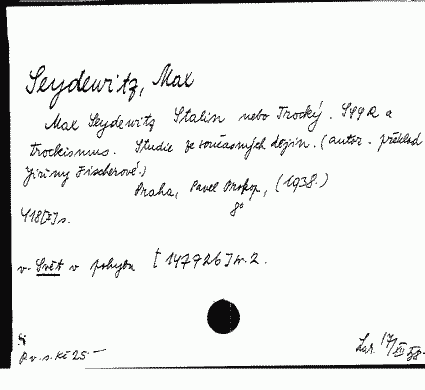 Seydewitz, Max
Max Seydewitz Stalin nebo Trocký. SSSR a
trockismus. Studie ze současných dějin. (autor. překlad
Jiřiny Fischerové.)
Praha, Pavel Prokop, (1938.)
8°
418[I]s.
v. Svět v pohybu [147926] sv. 2.
Pv. s. Kč 25.—
Lar. 17/XII 58.